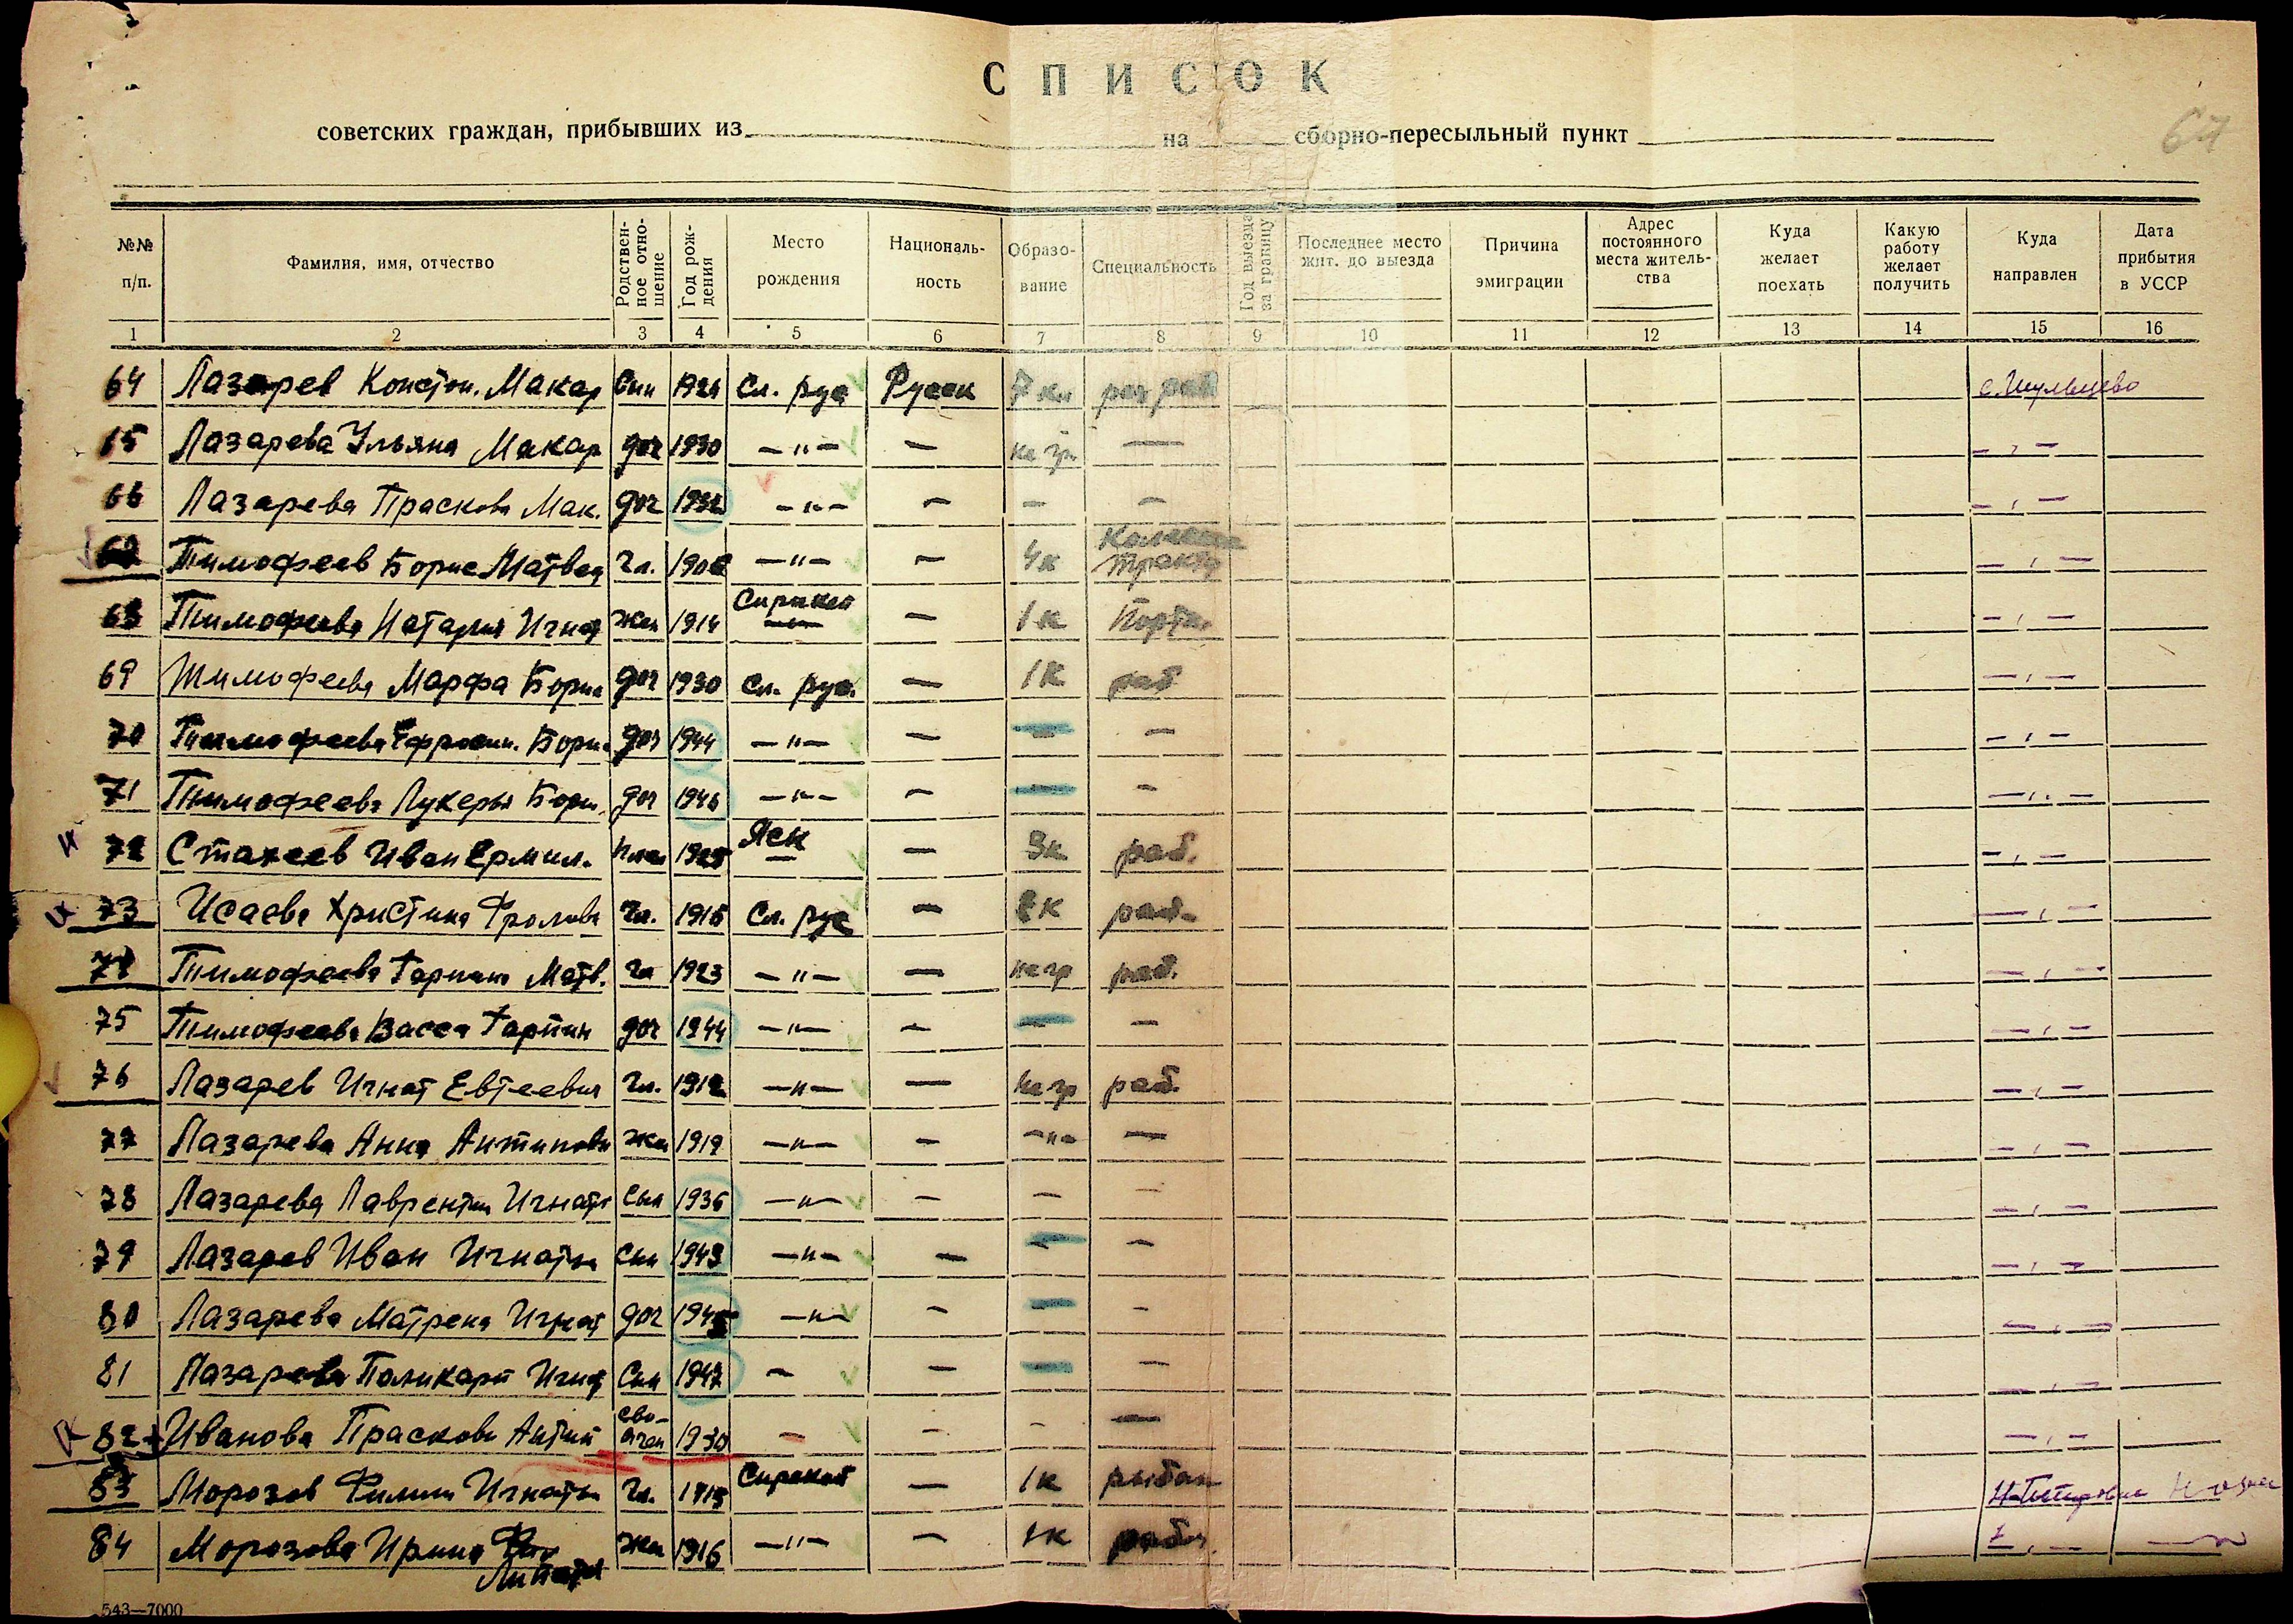 СПИСОК
советских граждан, прибывших из на сборно-пересыльный пункт
64
№№ п/п. Фамилия, имя, отчество Родственное отношение Год рождения Место рождения Националь-ность Образо-вание Специальность Год выезда за границу Последнее место жит. до выезда Причина эмиграции Адрес постоянного места житель-ства Куда желает поехать Какую работу желает получить Куда направлен Дата прибытия в УССР
1 2 3 4 5 6 7 8 9 10 11 12 13 14 15 16
64 Лазарев Констан. Макар Сын Сл. рус Русск 7 кл с. Шульцево
65 Лазарева Ульяна Макар доч 1930 —"— — не гр — —"—
66 Лазарева Прасковя Мак. доч 1932 —"— — — — —"—
Тимофеев Борис Матвеев Гл. —"— — 4к —"—
68 Тимофеева Наталия Игнат жен 1914 Сирикей — 1к Портн. —"—
69 Тимофеева Марфа Борис доч 1930 Сл. рус. — 1к раб —"—
70 Тимофеева Ефросин. Борис. доч 1944 —"— — — — —"—
71 Тимофеева Лукерья Борис. доч 1946 —"— — — — —"—
72 Стахеев Иван Ермил. 1925 Яск — 3к раб. —"—
73 Исаева Христина Фролова Гл. Сл. рус — 2к раб. —"—
74 Тимофеева Матв. Гл 1923 —"— — не гр раб. —"—
75 Тимофеева Васса доч 1944 —"— — — — —"—
76 Лазарев Игнат Евтеевич Гл. 1912 —"— — не гр раб. —"—
77 Лазарева Анна Антипови жен 1919 —"— — —"— — —"—
78 Лазарева Лаврентий Игнати сын 1936 —"— — — — —"—
79 Лазарев Иван Игнатьи сын 1943 —"— — — — —"—
80 Лазарева Матрена Игнат доч 1945 —"— — — — —"—
81 Лазарева Поликарп Игнат Сын 1947 — — — — —"—
82 Иванова Прасковя Антип сво-ячен 1930 — — — — —"—
83 Морозов Филип Игнатьи Гл. Сирикей — 1к рыбак
84 Морозова Ирина Липати жен 1916 —"— — 1к —"—
543—7000